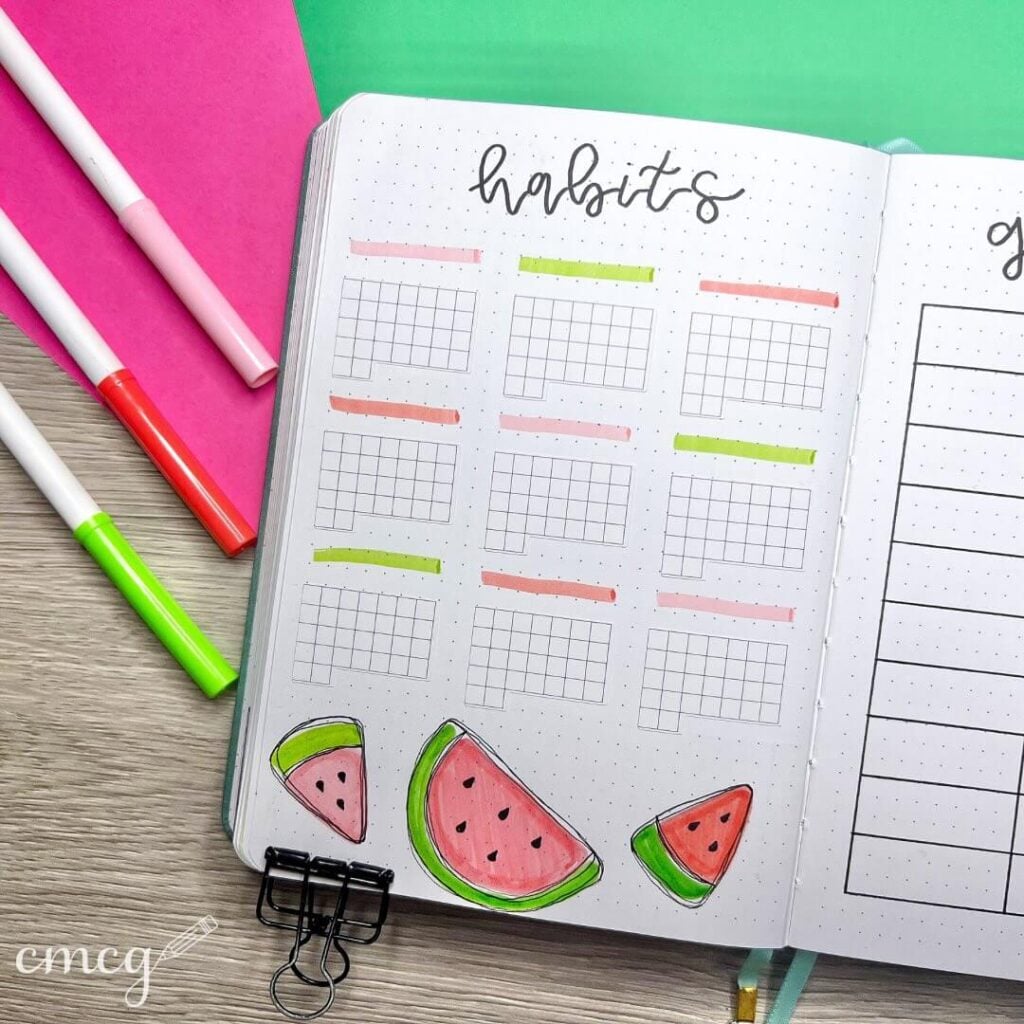 habits
g
cmcg